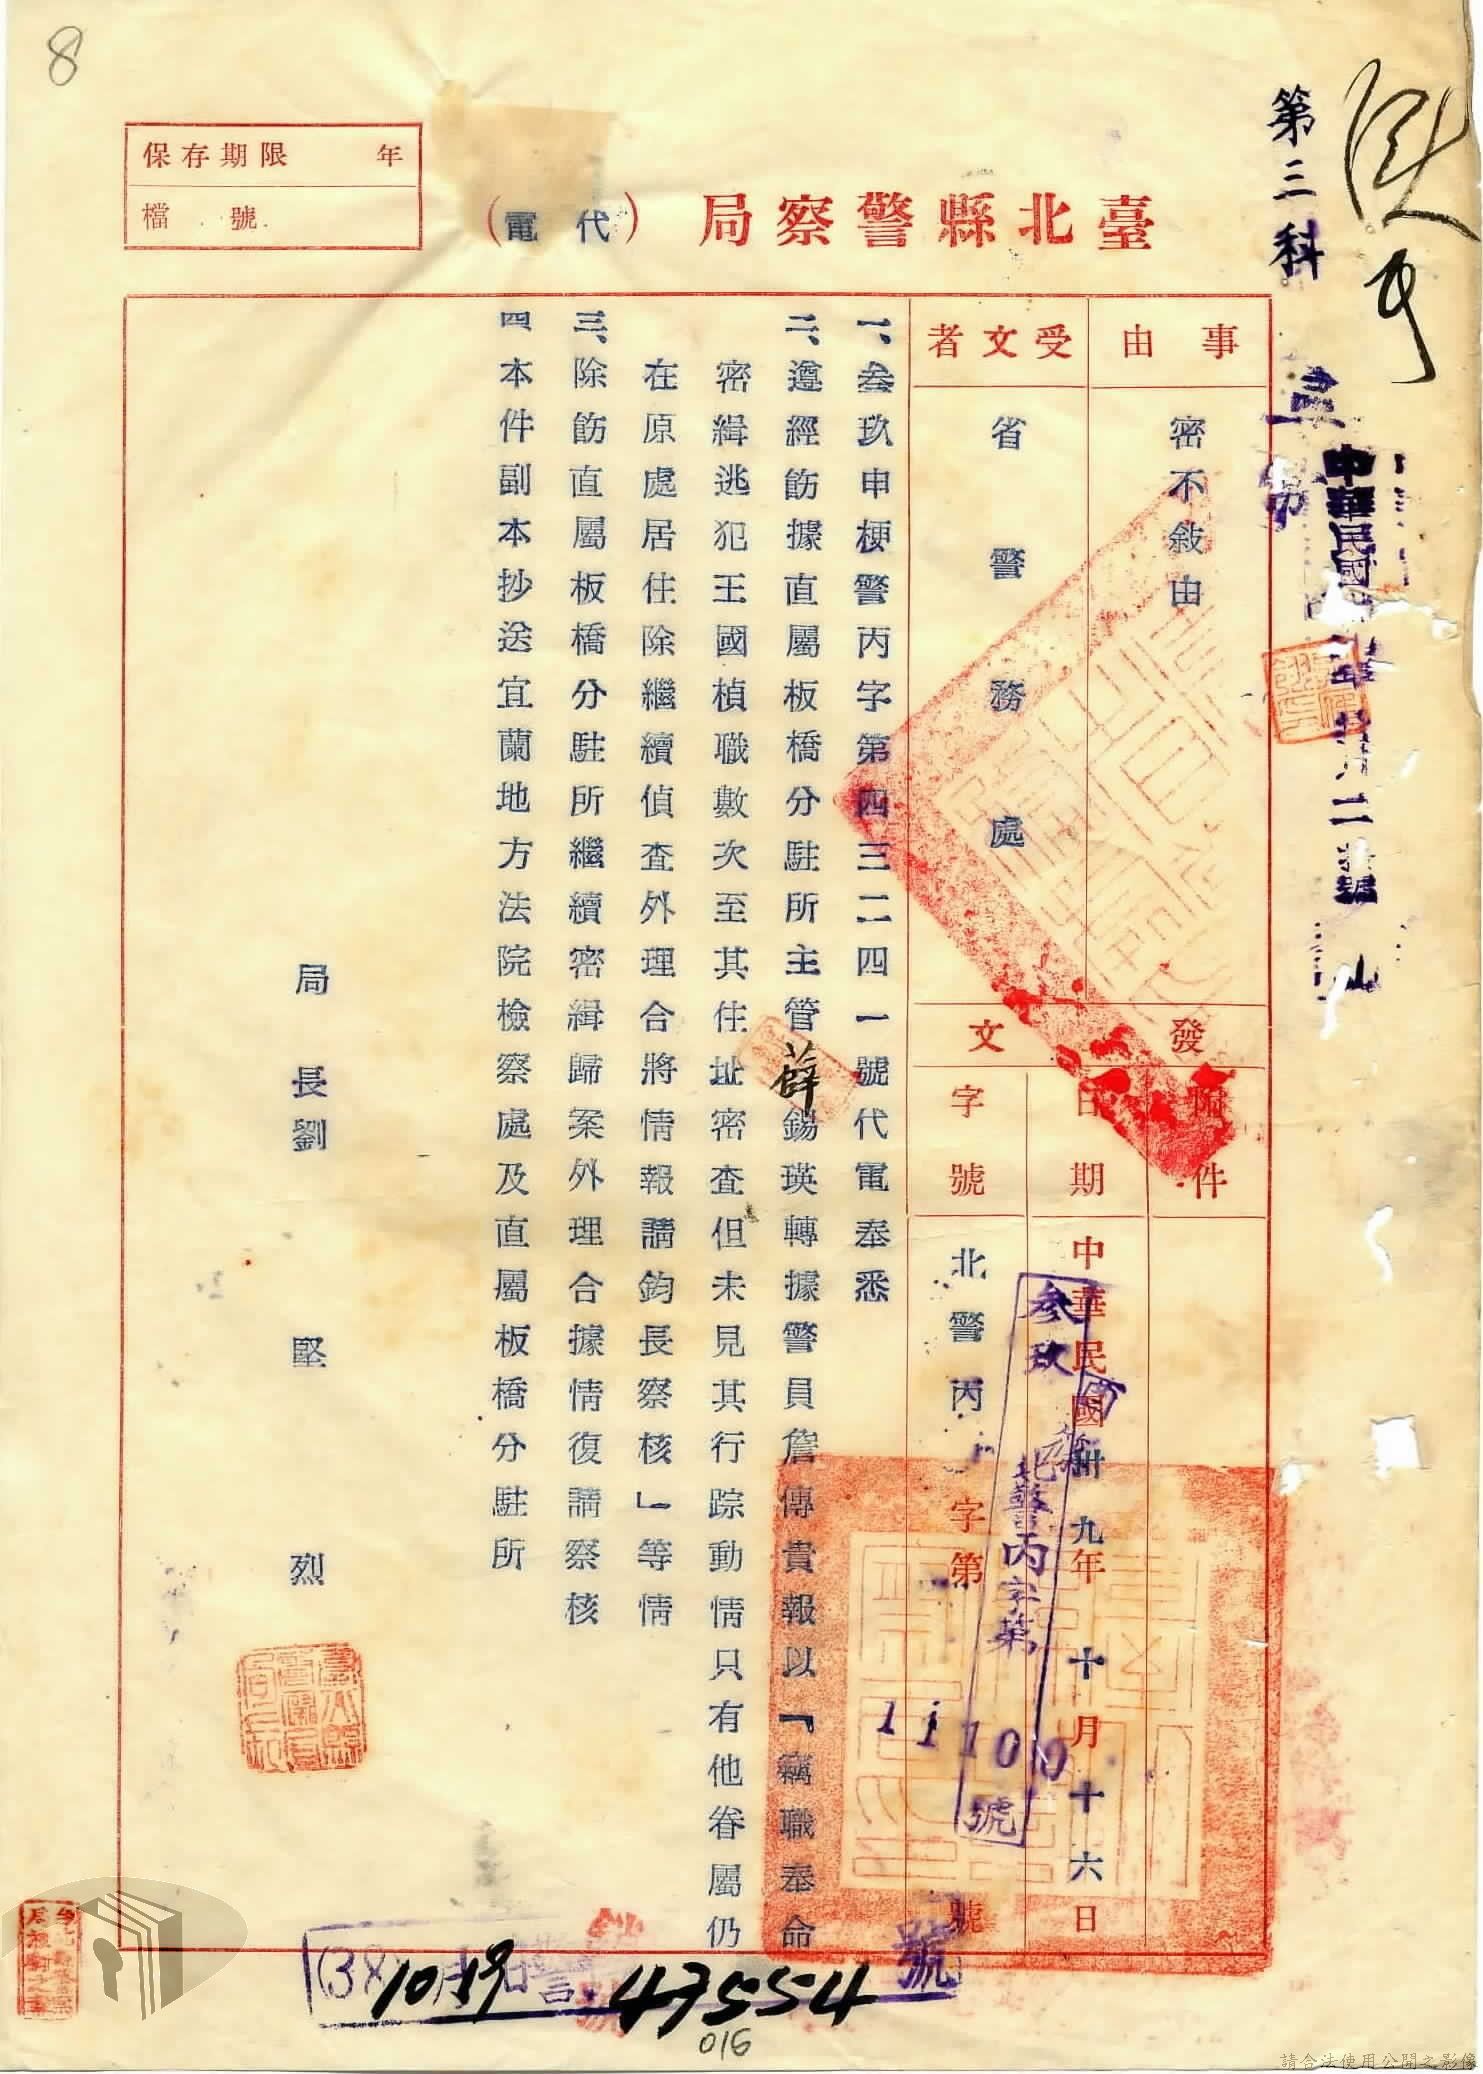 8
保存期限　年
檔　號
臺北縣警察局（代電）
第三科
事由
密不敍由
受文者
省警務處
發文
附件
日期
中華民國卅九年十月十六日
字號
北警丙字第號
參玖
北警丙字第
11100
號
一、叁玖申梗警丙字第四三二四一號代電奉悉
二、遵經飭據直屬板橋分駐所主管薛錫瑛轉據警員詹傳貴報以『竊職奉命
密緝逃犯王國楨職數次至其住址密查但未見其行踪動情只有他眷屬仍
在原處居住除繼續偵查外理合將情報請鈞長察核』等情
三、除飭直屬板橋分駐所繼續密緝歸案外理合據情復請察核
四本件副本抄送宜蘭地方法院檢察處及直屬板橋分駐所
局長劉堅烈
中華民國
號
10
43554
016
請合法使用公開之影像